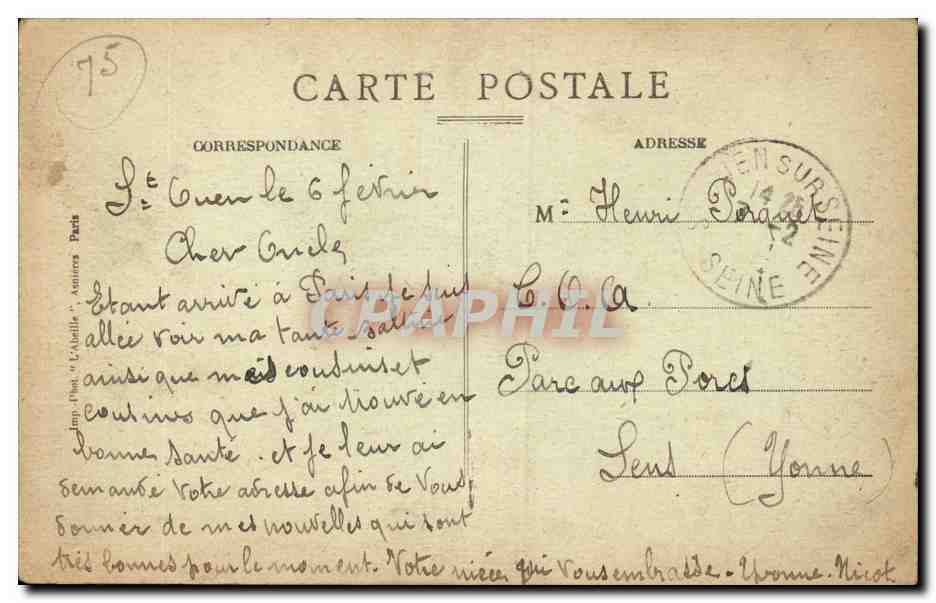 75
CARTE POSTALE
CORRESPONDANCE
ADRESSE
St. Ouen le 6 fevrier
Cher Oncle
Etant arrivé à Paris je suis
allée voir ma tante
ainsi que mes cousins et
cousines que j'ai trouvé en
bonne santé. et je leur ai
demandé votre adresse afin de vous
donner de mes nouvelles qui sont
très bonnes pour le moment. Votre nièce qui vous embrasse. Yvonne. Nicot
Imp.-Phot. "L'Abeille", Asnières Paris
M. Henri Porquet
C.O.A.
Parc aux Porcs
Sens (Yonne)
OUEN SUR SEINE
14 25
SEINE
CPAPHIL